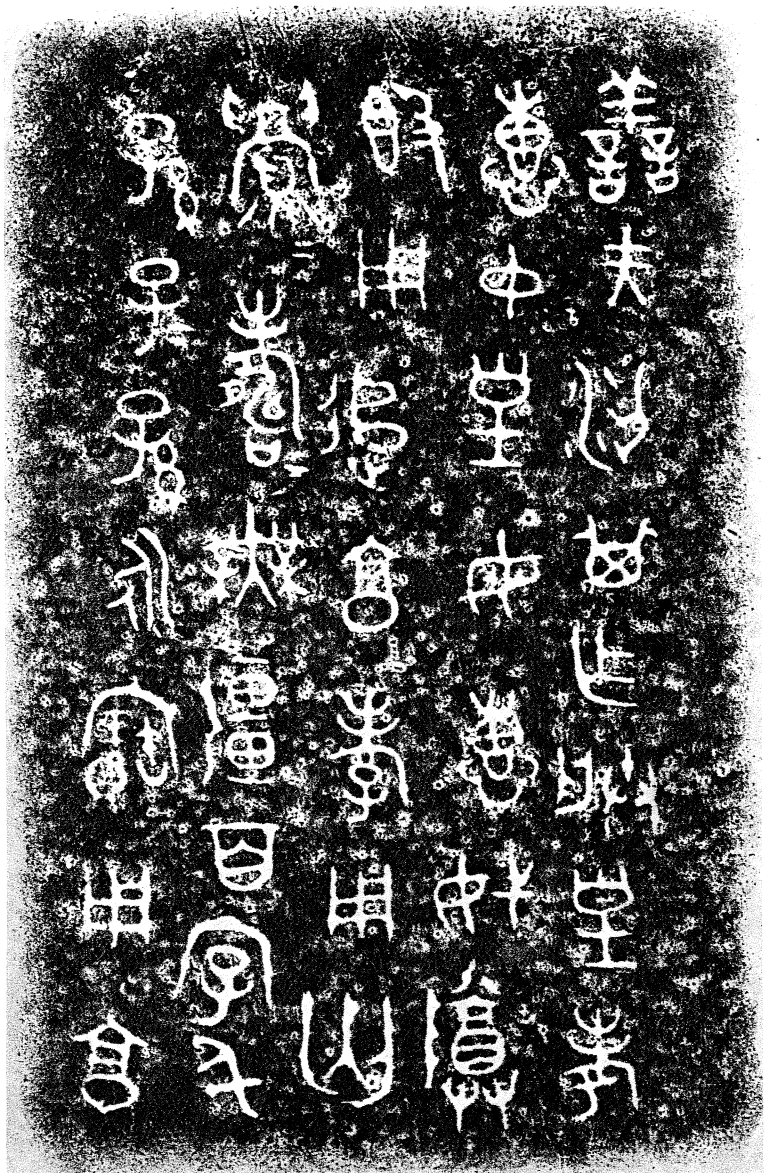 善夫梁其乍朕皇考
惠中皇母惠妣尊
𣪘用追享孝用匄
眉=壽=無疆百字千
孫子孫永寶用享